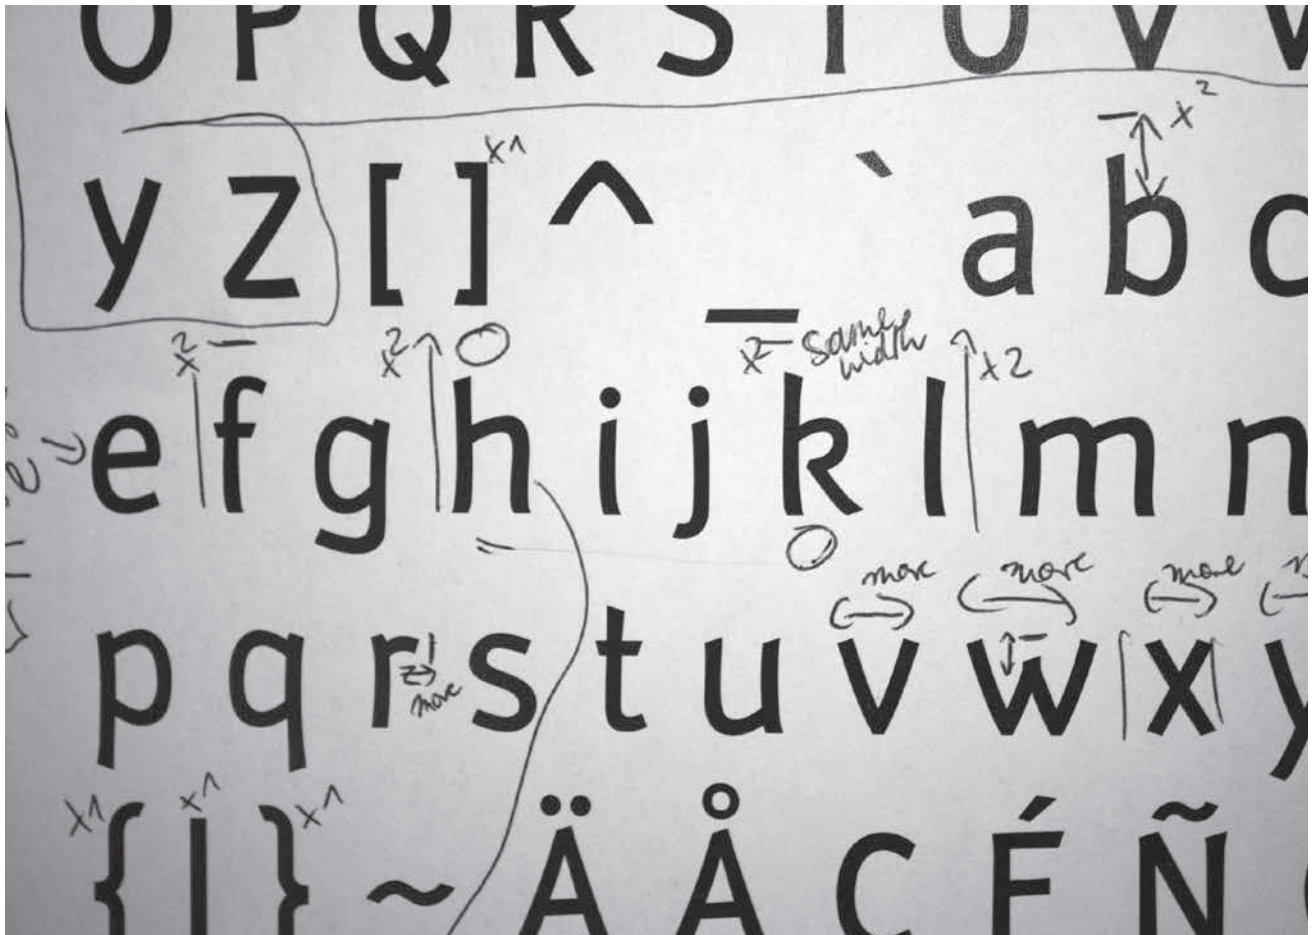 O P Q R S T U V
x²
x1
y z [ ] ^ _ ` a b c
x² x² x² same width x2
e f g h i j k l m n
more more more
p q r s t u v w x y
more
x1 x1 x1
{ | } ~ Ä Å Ç É Ñ